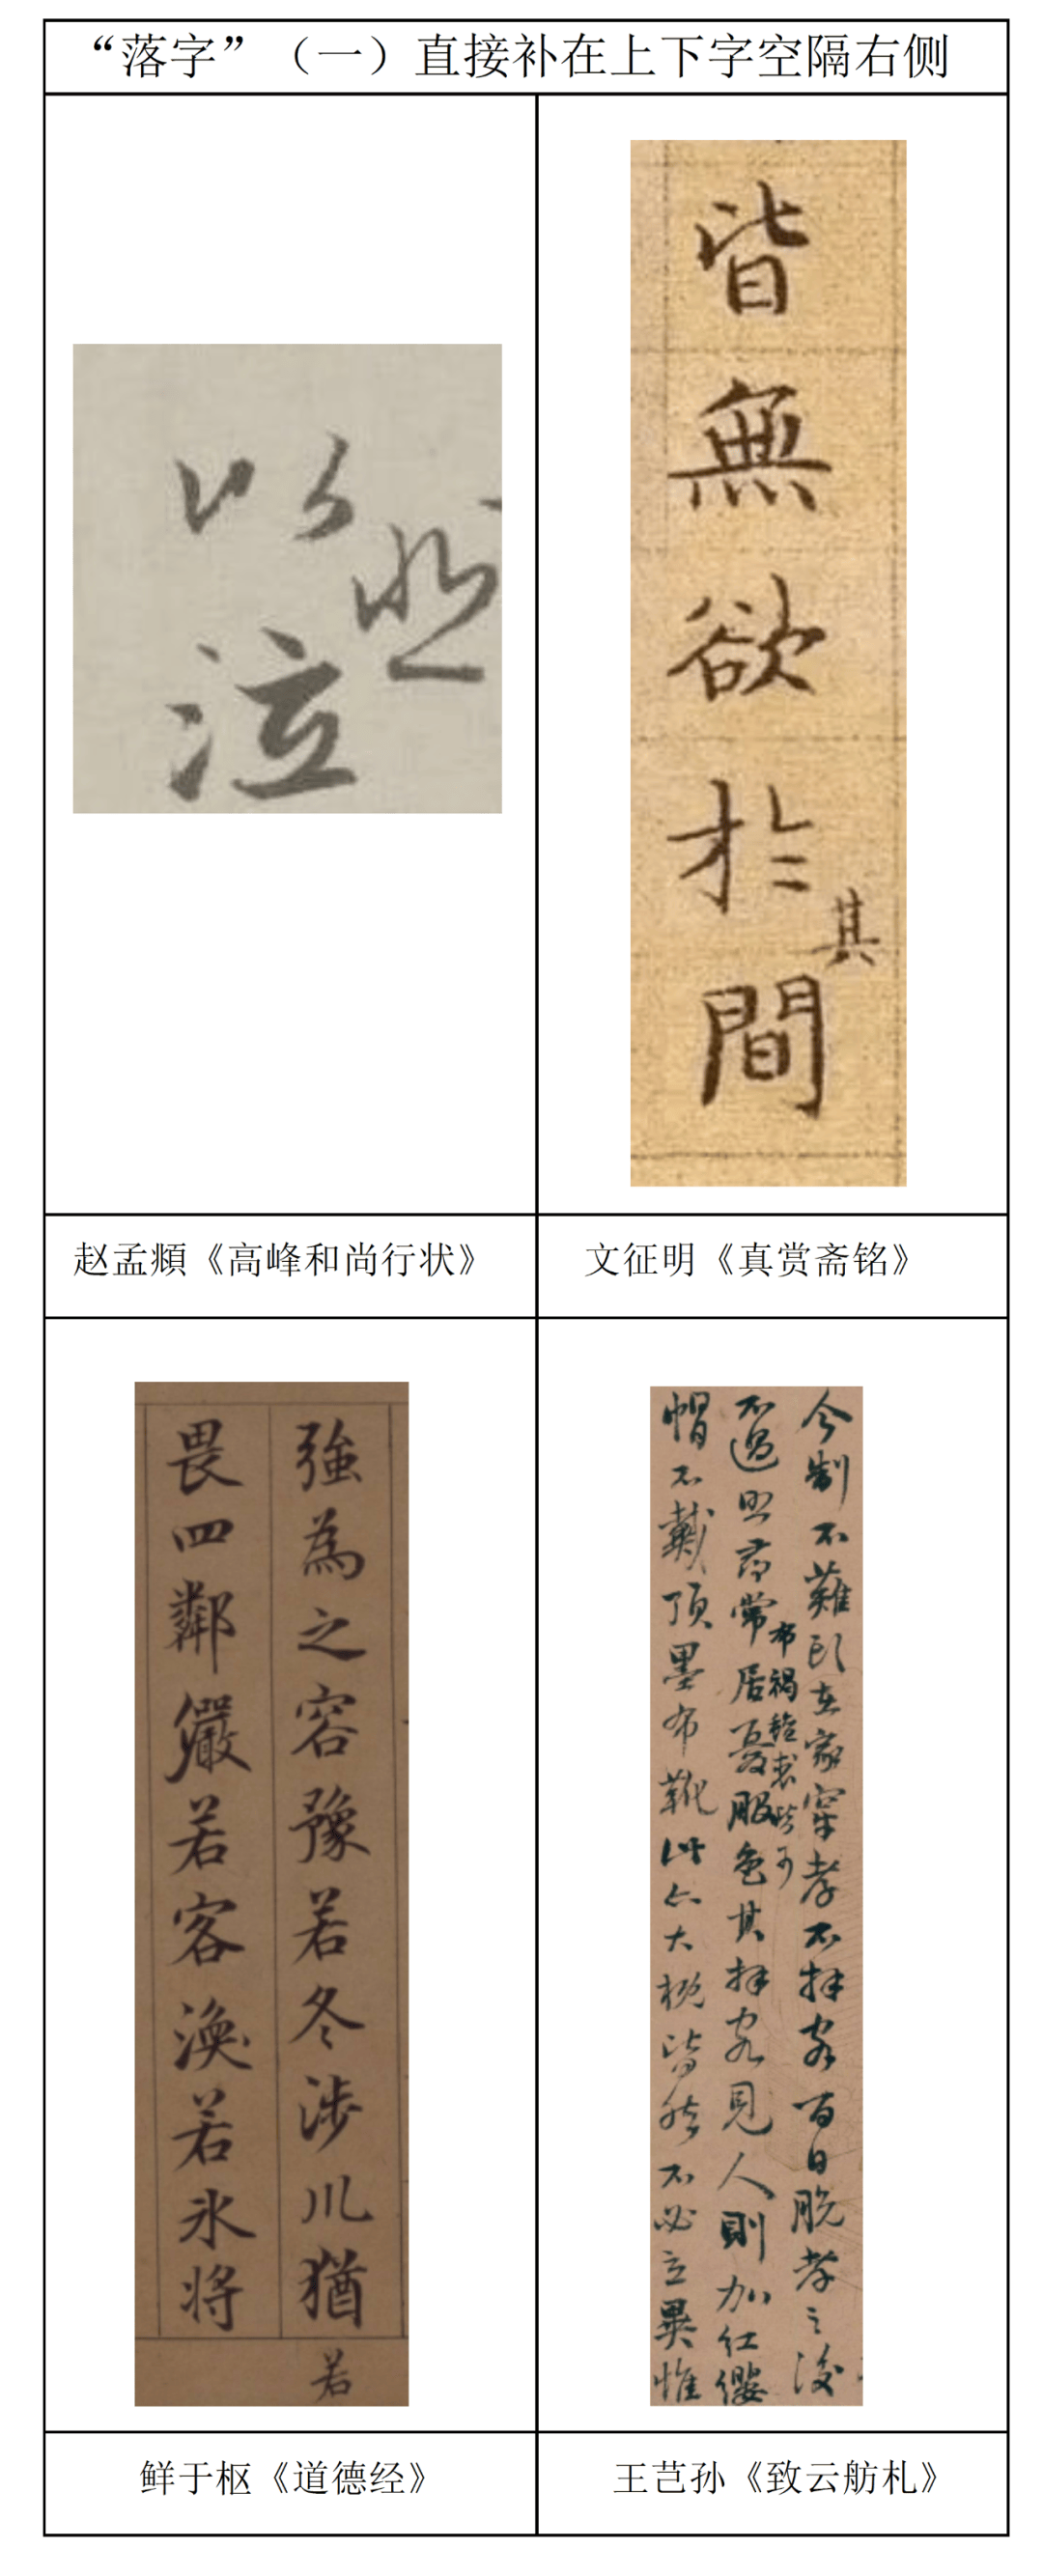 “落字”（一）直接补在上下字空隔右侧
以
泣
皆無欲於間
其
赵孟頫《高峰和尚行状》
文征明《真赏斋铭》
強為之容豫若冬涉川猶
若
畏四鄰儼若客渙若氷将
今制不難
在家穿孝不拜客百日脱孝之後
布褐
常居憂服色其拜客見人則加红纓
帽不戴頂墨布靴此亦大概皆然不必立異惟
鲜于枢《道德经》
王芑孙《致云舫札》